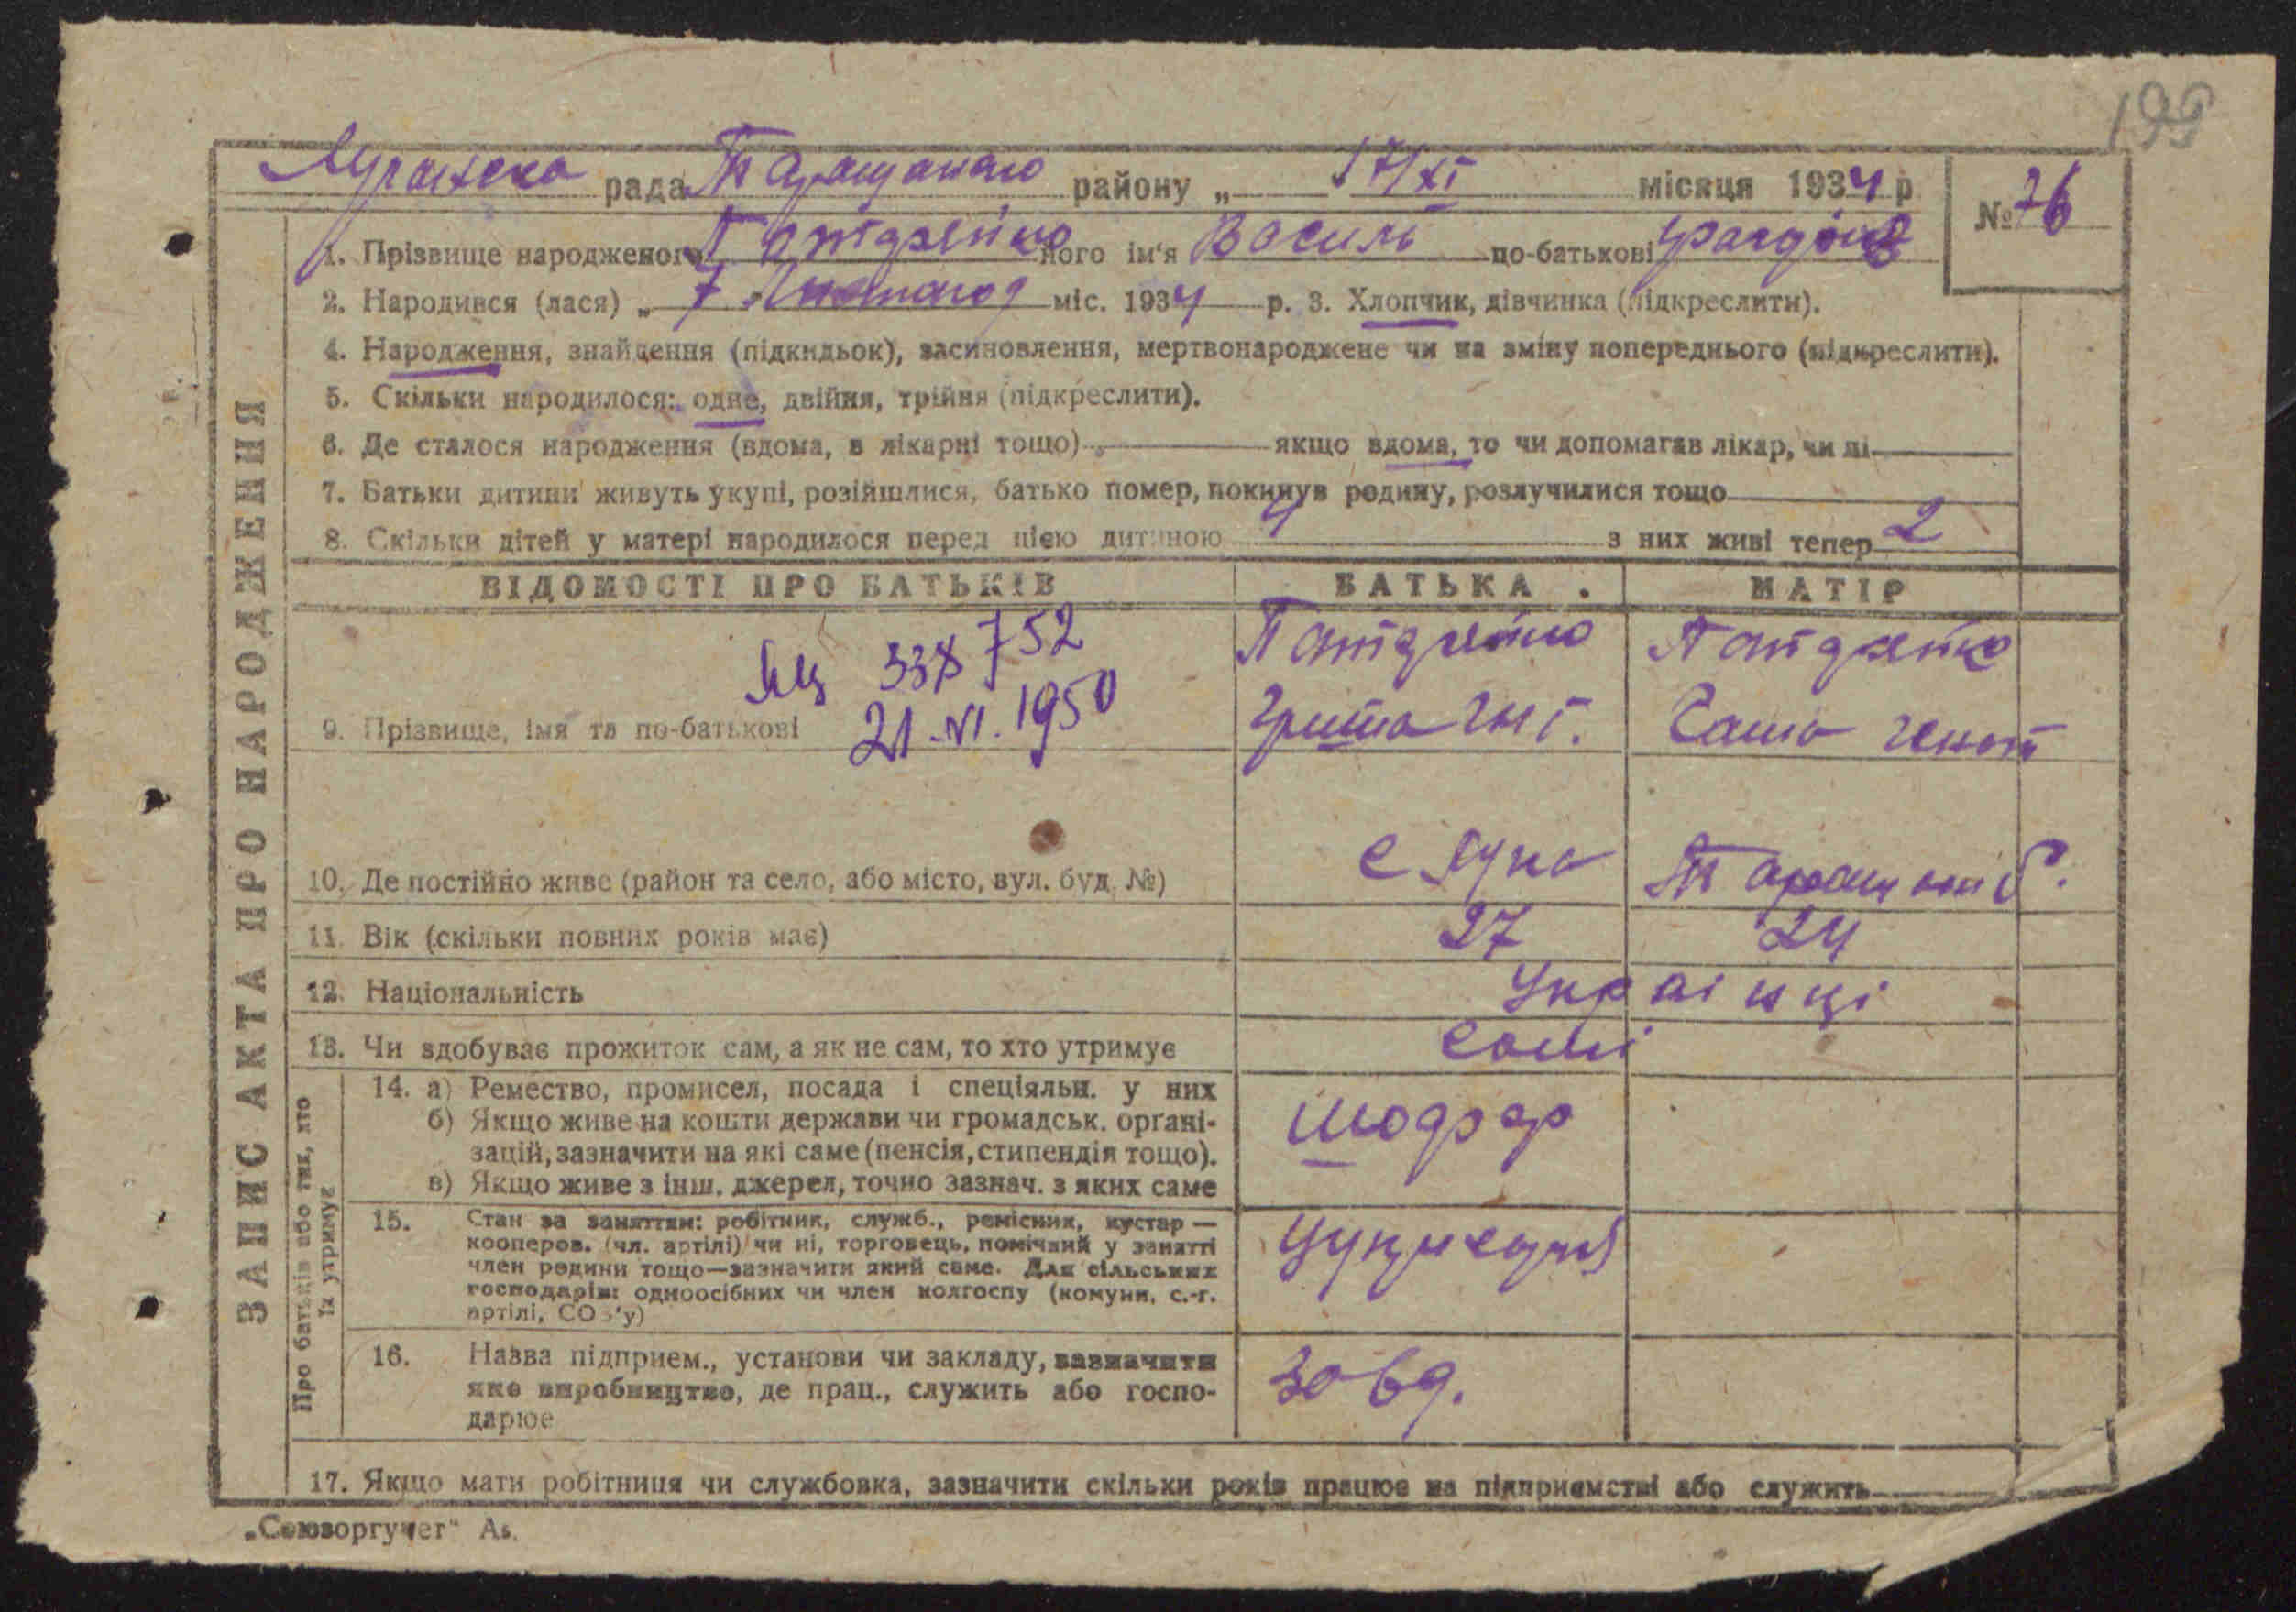 199
рада Таращанського району „ 17/XI місяця 1934 р
№ 76
1. Прізвище народженого його ім'я Василь по-батькові
2. Народився (лася) „ 7 міс. 1934 р. 3. Хлопчик, дівчинка (підкреслити).
4. Народження, знайдення (підкидьок), засиновлення, мертвонароджене чи на зміну попереднього (підкреслити).
5. Скільки народилося: одне, двійня, трійня (підкреслити).
6. Де сталося народження (вдома, в лікарні тощо) якщо вдома, то чи допомагав лікар, чи ні
7. Батьки дитини живуть укупі, розійшлися, батько помер, покинув родину, розлучилися тощо
8. Скільки дітей у матері народилося перед цією дитиною 4 з них живі тепер 2
ЗАПИС АКТА ПРО НАРОДЖЕННЯ
ВІДОМОСТІ ПРО БАТЬКІВ БАТЬКА МАТІР
338752
21-VI.1950
9. Прізвище, імя та по-батькові
10. Де постійно живе (район та село, або місто, вул. буд. №) с Лука
11. Вік (скільки повних років має) 27 24
12. Національність Українці
13. Чи здобуває прожиток сам, а як не сам, то хто утримує сами
Про батьків або тих, хто їх утримує
14. а) Ремество, промисел, посада і спеціяльн. у них шофер
б) Якщо живе на кошти держави чи громадськ. органі-
зацій, зазначити на які саме (пенсія, стипендія тощо).
в) Якщо живе з інш. джерел, точно зазнач. з яких саме
15. Стан за заняттям: робітник, служб., ремісник, кустар —
кооперов. (чл. артілі) чи ні, торговець, помічний у занятті
член родини тощо—зазначити який саме. Для сільських
господарів: одноосібних чи член колгоспу (комуни, с.-г.
артілі, СОЗ'у)
16. Назва підприєм., установи чи закладу, зазначити
яке виробництво, де прац., служить або госпо-
дарює
17. Якщо мати робітниця чи службовка, зазначити скільки років працює на підприємстві або служить
„Союзоргучет"